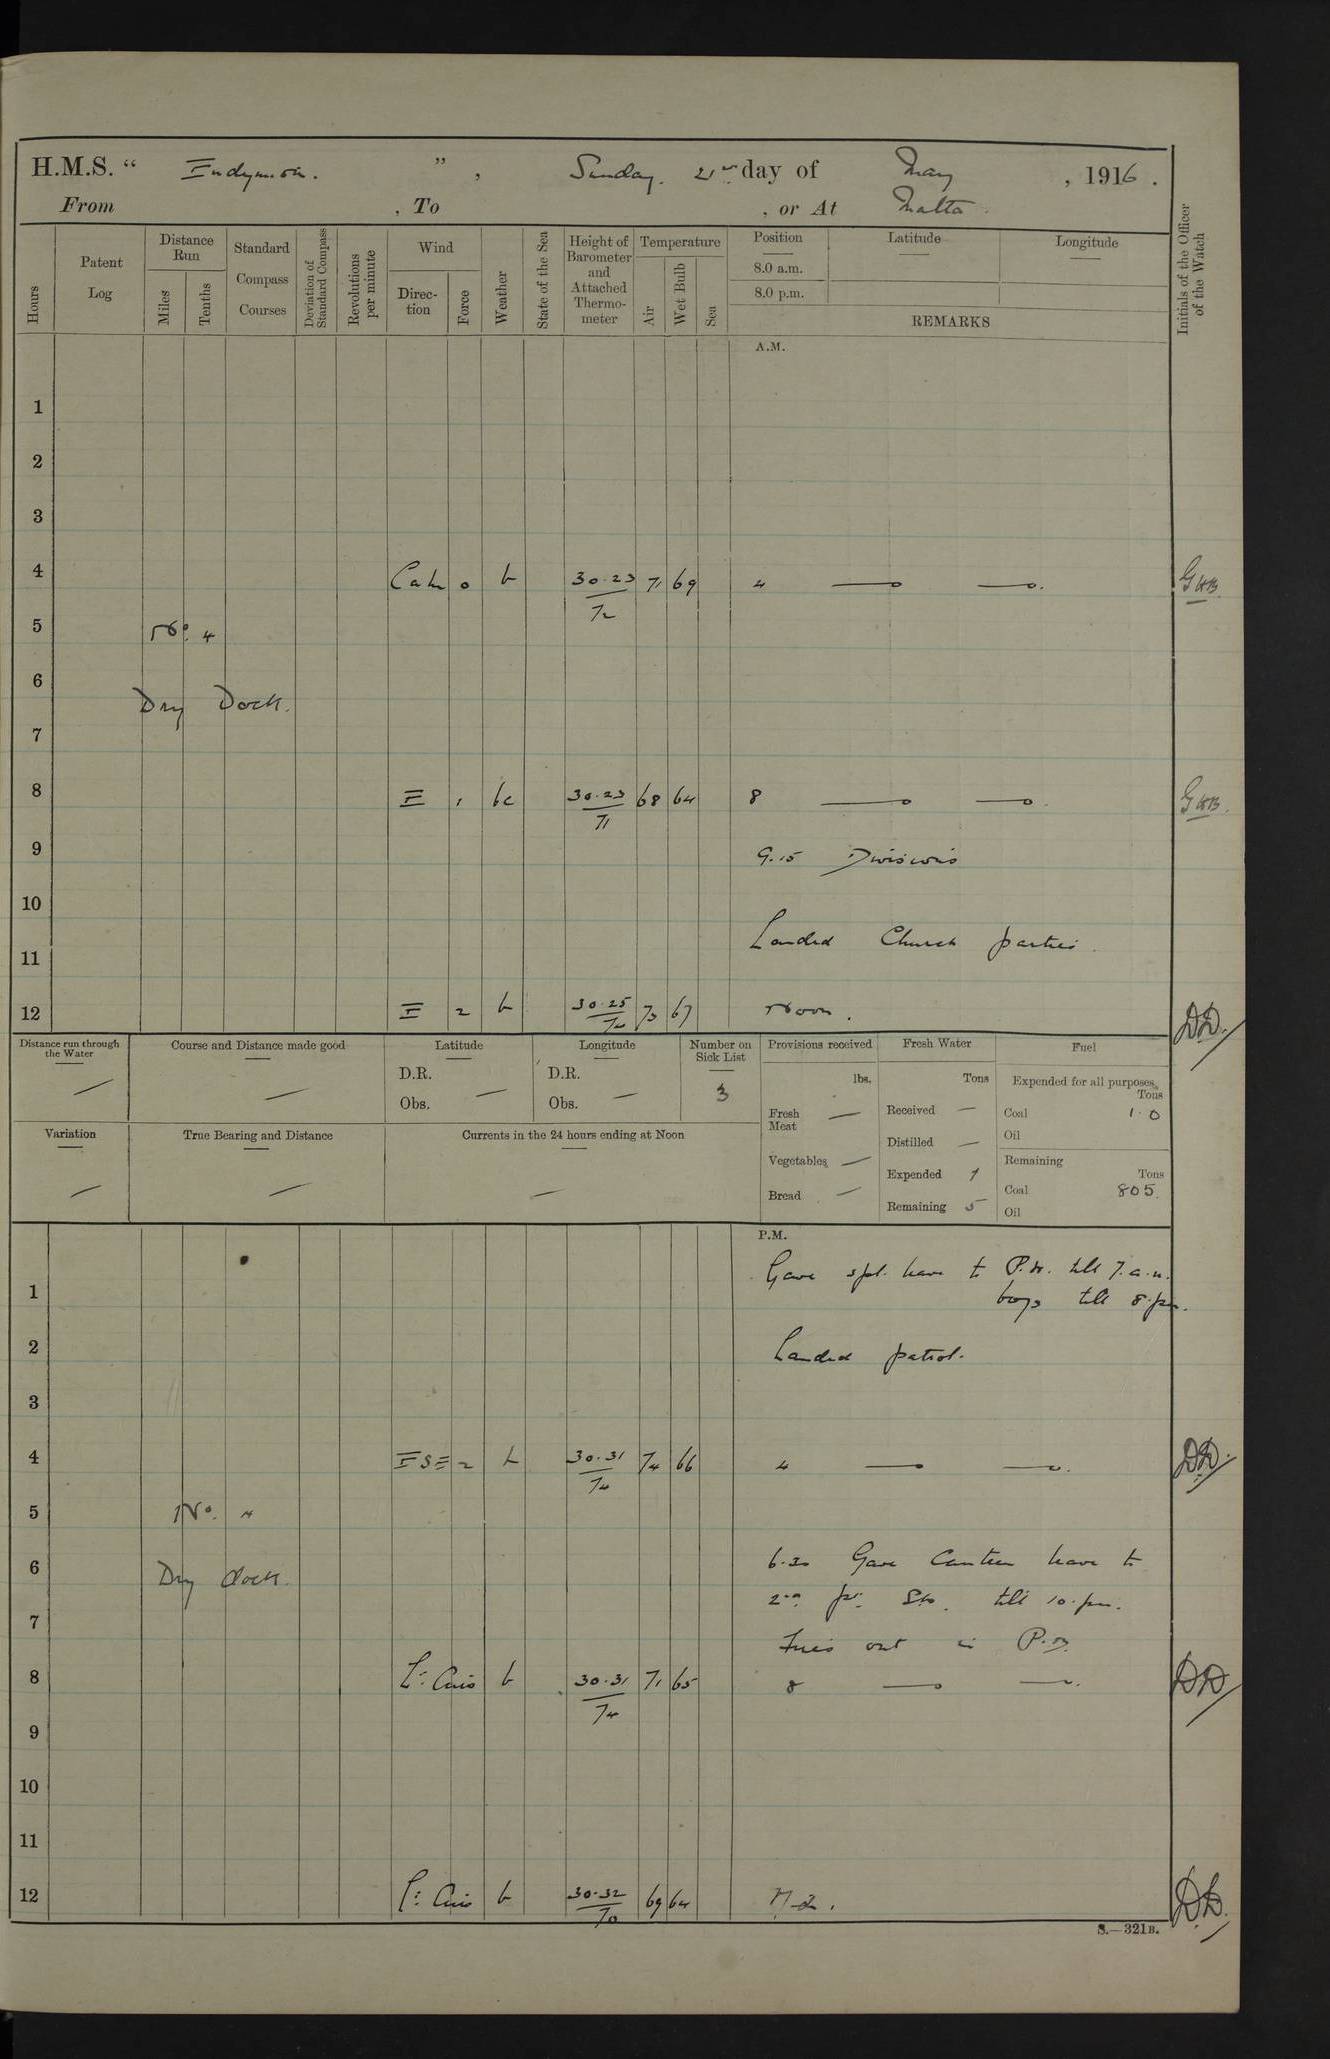 H.M.S. " Endymion. ", Sunday. 21st day of May, 1916.
From , To , or At Malta.
Hours
Patent Log
Distance Run
Miles
Tenths
Standard Compass Courses
Deviation of Standard Compass
Revolutions per minute
Wind
Direction
Force
Weather
State of the Sea
Height of Barometer and Attached Thermometer
Temperature
Air
Wet Bulb
Sea
Position
8.0 a.m.
8.0 p.m.
Latitude
Longitude
REMARKS
Initials of the Officer of the Watch
A.M.
1
2
3
4 Calm 0 b 30.23/72 71 69 4 GHB.
5 No. 4
6
Dry Dock.
7
8 E 1 bc 30.23/71 68 64 8 GHB.
9 9.15 Divisions
10
Landed Church parties.
11
12 E 2 b 30.25/74 73 67 Noon. DD.
Distance run through the Water
Course and Distance made good
Latitude
D.R.
Obs.
Longitude
D.R.
Obs.
Number on Sick List
3
Variation
True Bearing and Distance
Currents in the 24 hours ending at Noon
Provisions received
lbs.
Fresh Meat
Vegetables
Bread
Fresh Water
Tons
Received
Distilled
Expended 1
Remaining 5
Fuel
Expended for all purposes
Tons
Coal 1.0
Oil
Remaining
Tons
Coal 805.
Oil
P.M.
Gave spl. leave to P.W. till 7.a.m.
1 boys till 8.pm.
2 Landed patrol.
3
4 ESE 2 b 30.31/74 74 66 4 DD.
5 No. 4
6.30 Gave Canteen leave to
6 Dry dock.
2nd pt. Sto. till 10.pm.
7
Fires out in P.B.
8 Lt. Airs b 30.31/74 71 65 8 DD
9
10
11
12 Lt. Airs b 30.32/70 69 64 Md. DD.
S.—321B.